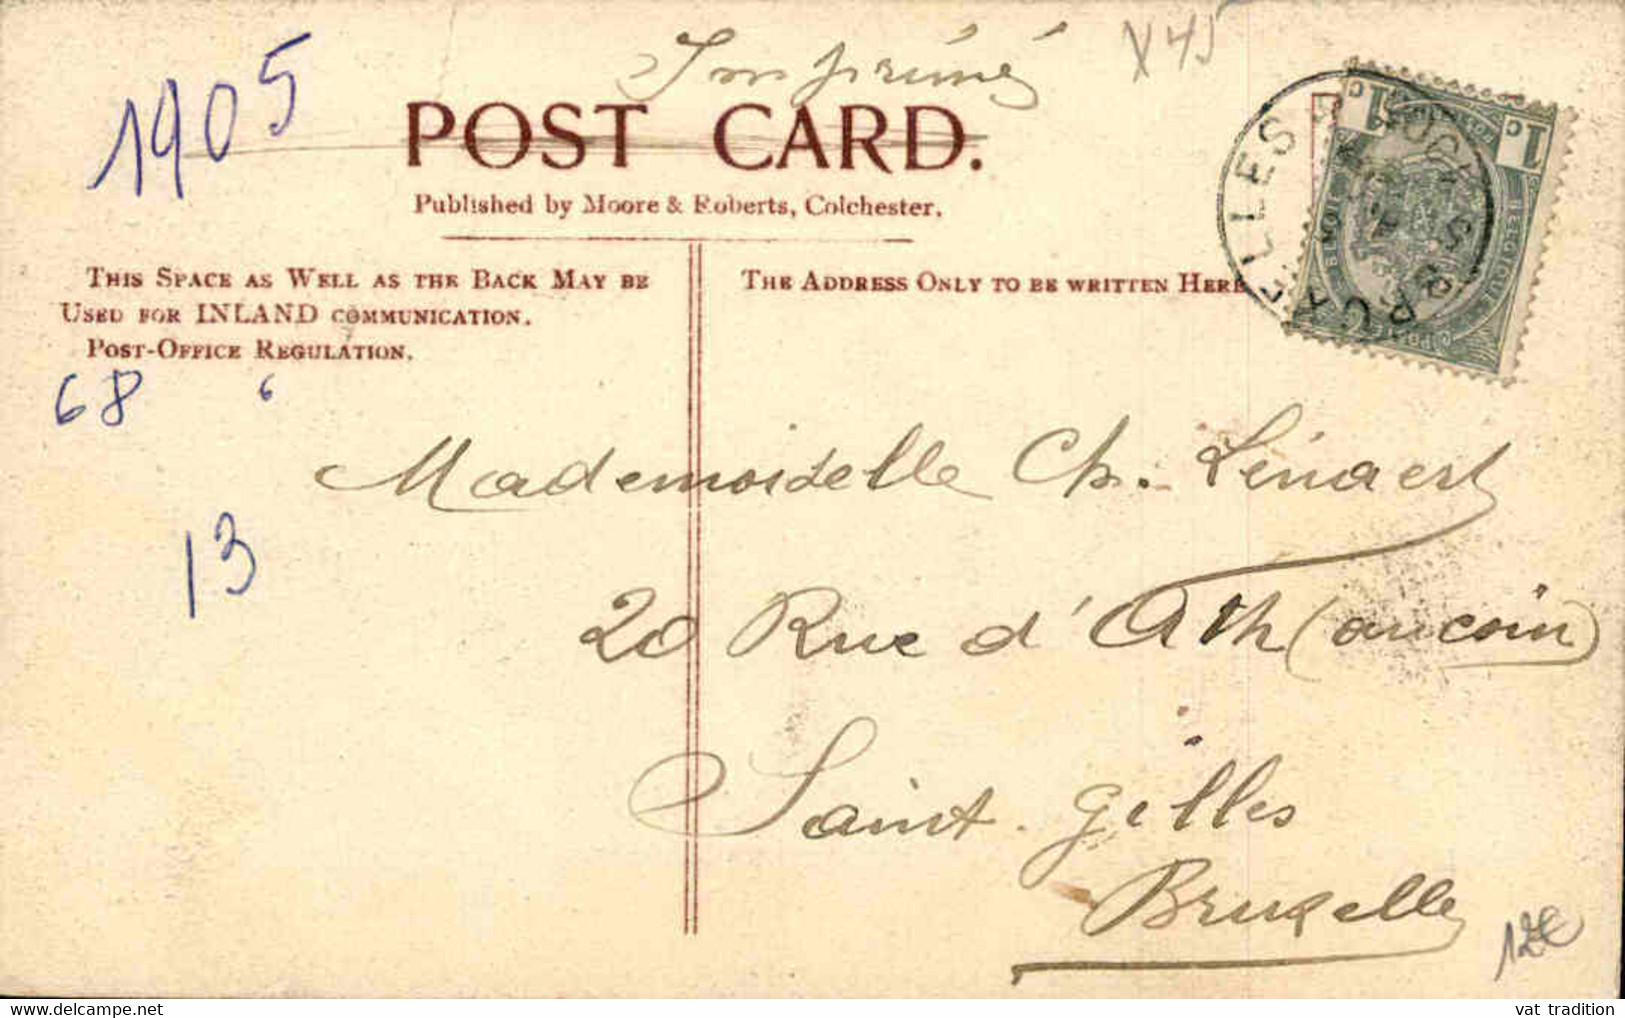 Imprimé
X45
1905
POST CARD.
Published by Moore & Roberts, Colchester.
THIS SPACE AS WELL AS THE BACK MAY BE
USED FOR INLAND COMMUNICATION.
POST-OFFICE REGULATION.
THE ADDRESS ONLY TO BE WRITTEN HERE
1c
1c
BELGIQUE
68 6
13
Mademoiselle Ch. Lénaert
20 Rue d'Ath (au coin)
Saint. Gilles
Bruxelles
12€
vat tradition